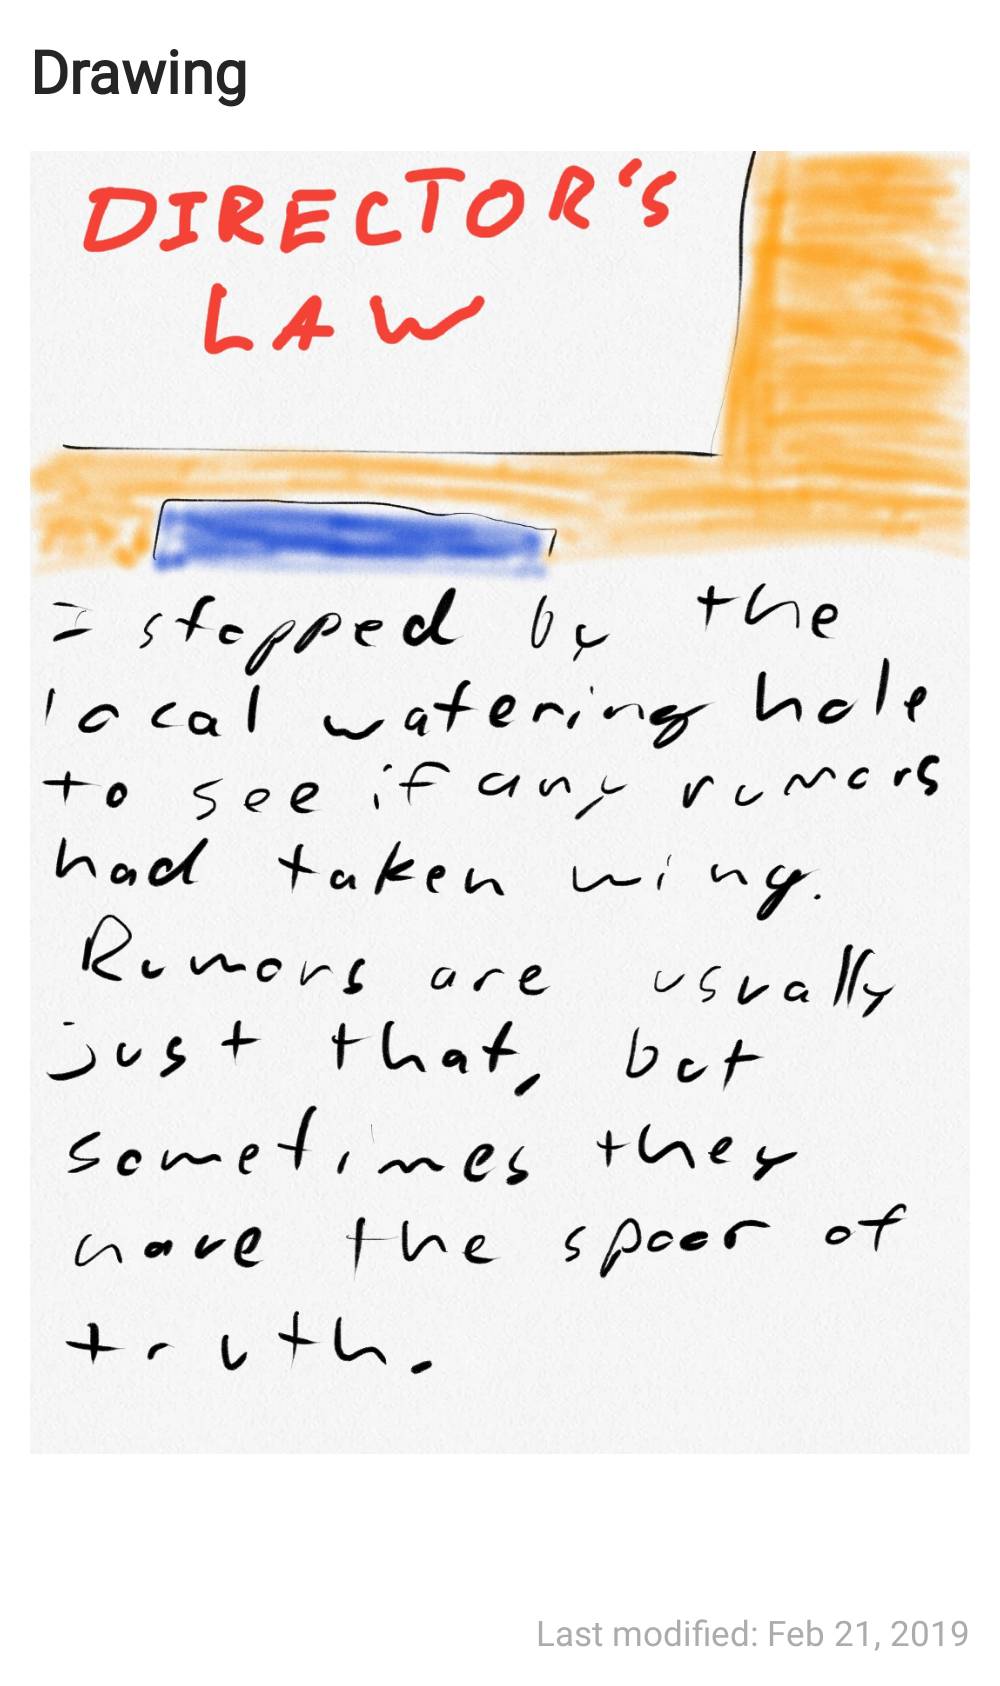 Drawing
DIRECTOR'S
LAW
I stopped by the
local watering hole
to see if any rumors
had taken wing.
Rumors are usually
just that, but
sometimes they
have the spoor of
truth.
Last modified: Feb 21, 2019